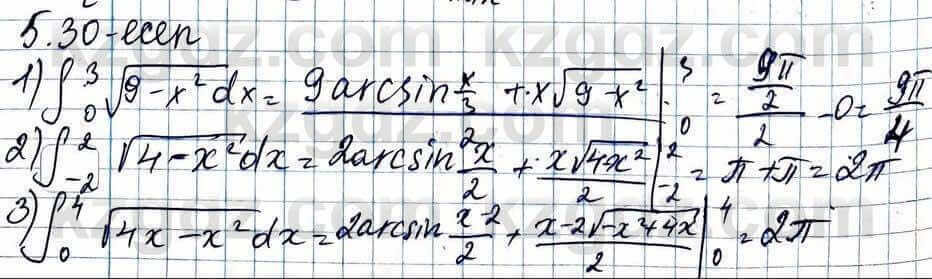 5.30-есеп
1) ∫₀³ √(9-x²) dx = (9 arcsin x/3 + x√(9-x²))/2 |₀³ = (9π/2)/2 - 0 = 9π/4
2) ∫₋₂² √(4-x²) dx = 2arcsin x/2 + x√(4-x²)/2 |₋₂² = π + π = 2π
3) ∫₀⁴ √(4x-x²) dx = 2arcsin (x-2)/2 + (x-2√(-x²+4x))/2 |₀⁴ = 2π